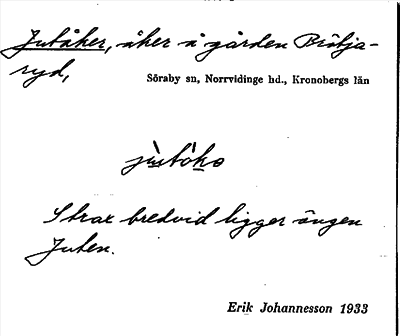 Jutåker, åker å gården Brötja-
ryd,
Söraby sn, Norrvidinge hd., Kronobergs län
Strax bredvid ligger ängen
Juten.
Erik Johannesson 1933